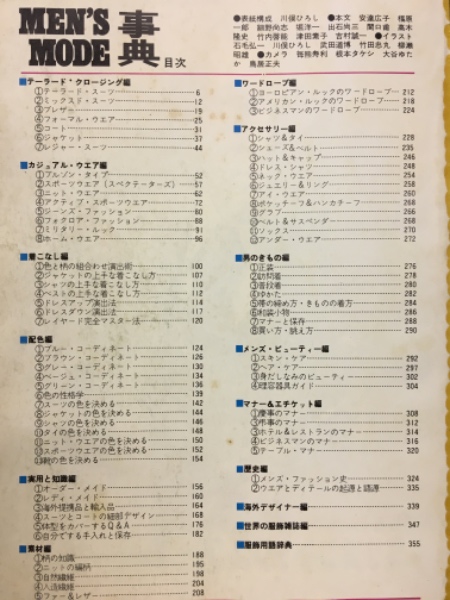 MEN'S
MODE
事典
目次
●表紙構成 川俣ひろし ●本文 安達広子 福原
隆史 竹内啓能 津田鷹子 吉村誠一 ●イラスト
石毛弘一 川俣ひろし 武田道博 竹田忠丸 柳瀬
■テーラード・クロージング編
①テーラード・スーツ 6
②ミックスド・スーツ 12
③ブレザー 19
④フォーマル・ウエア 25
⑤コート 31
⑥ジャケット 37
⑦レジャー・スーツ 44
■カジュアル・ウエア編
①ブルゾン・タイプ 52
②スポーツウエア(スペクテーターズ) 57
③ニット・ウエア 62
④アクティブ・スポーツウエア 72
⑤ジーンズ・ファッション 80
⑥フォクロア・ファッション 88
⑦ミリタリー・ルック 91
⑧ホーム・ウエア 96
■着こなし編
①色と柄の組合わせ演出術 100
②ジャケットの上手な着こなし方 107
③シャツの上手な着こなし方 110
④ベストの上手な着こなし方 112
⑤ドレスアップ演出法 114
⑥ドレスダウン演出法 117
⑦レイヤード完全マスター法 120
■配色編
①ブルー・コーディネート 124
②ブラウン・コーディネート 126
③グレー・コーディネート 130
④ベージュ・コーディネート 134
⑤グリーン・コーディネート 136
⑥色の性格学 139
⑦スーツの色を決める 142
⑧ジャケットの色を決める 144
⑨シャツの色を決める 146
⑩タイの色を決める 148
⑪ニット・ウエアの色を決める 150
⑫スポーツ・ウエアの色を決める 152
⑬靴の色を決める 154
■実用と知識編
①オーダー・メイド 156
②レディ・メイド 160
③海外提携品と輸入品 164
④スーツとコートの細部デザイン 168
⑤体型をカバーするQ&A 176
⑥自分でする手入れと保存 182
■素材編
①柄の知識 188
②ニットの編柄 195
③自然繊維 198
④人造繊維 204
⑤ファー&レザー 208
■ワードローブ編
①ヨーロピアン・ルックのワードローブ 212
②アメリカン・ルックのワードローブ 218
③ビジネスマンのワードローブ 224
■アクセサリー編
①シャツ&タイ 228
②シューズ&ベルト 235
③ハット&キャップ 246
④ドレス・シャツ 248
⑤ネック・ウエア 254
⑥ジュエリー&リング 258
⑦アイ・ウエア 260
⑧ポケッチーフ&ハンカチーフ 268
⑨グラブ 266
⑩ベルト&サスペンダ 268
⑪ソックス 270
⑫アンダー・ウエア 272
■男のきもの編
①正装 276
②訪問着 278
③普段着 280
④ゆかた 282
⑤帯の締め方・きものの着方 284
⑥和装小物 286
⑦マナーと保存 288
⑧買い方・誂え方 290
■メンズ・ビューティー編
①スキン・ケア 292
②ヘア・ケア 297
③身だしなみのビューティ 302
④理容器具ガイド 304
■マナー&エチケット編
①慶事のマナー 308
②弔事のマナー 312
③ホテル&レストランのマナー 314
④ビジネスマンのマナー 316
⑤テーブル・マナー 320
■歴史編
①メンズ・ファッション史 324
②ウエアとディテールの起源と語源 335
■海外デザイナー編 339
■世界の服飾雑誌編 347
■服飾用語辞典 355